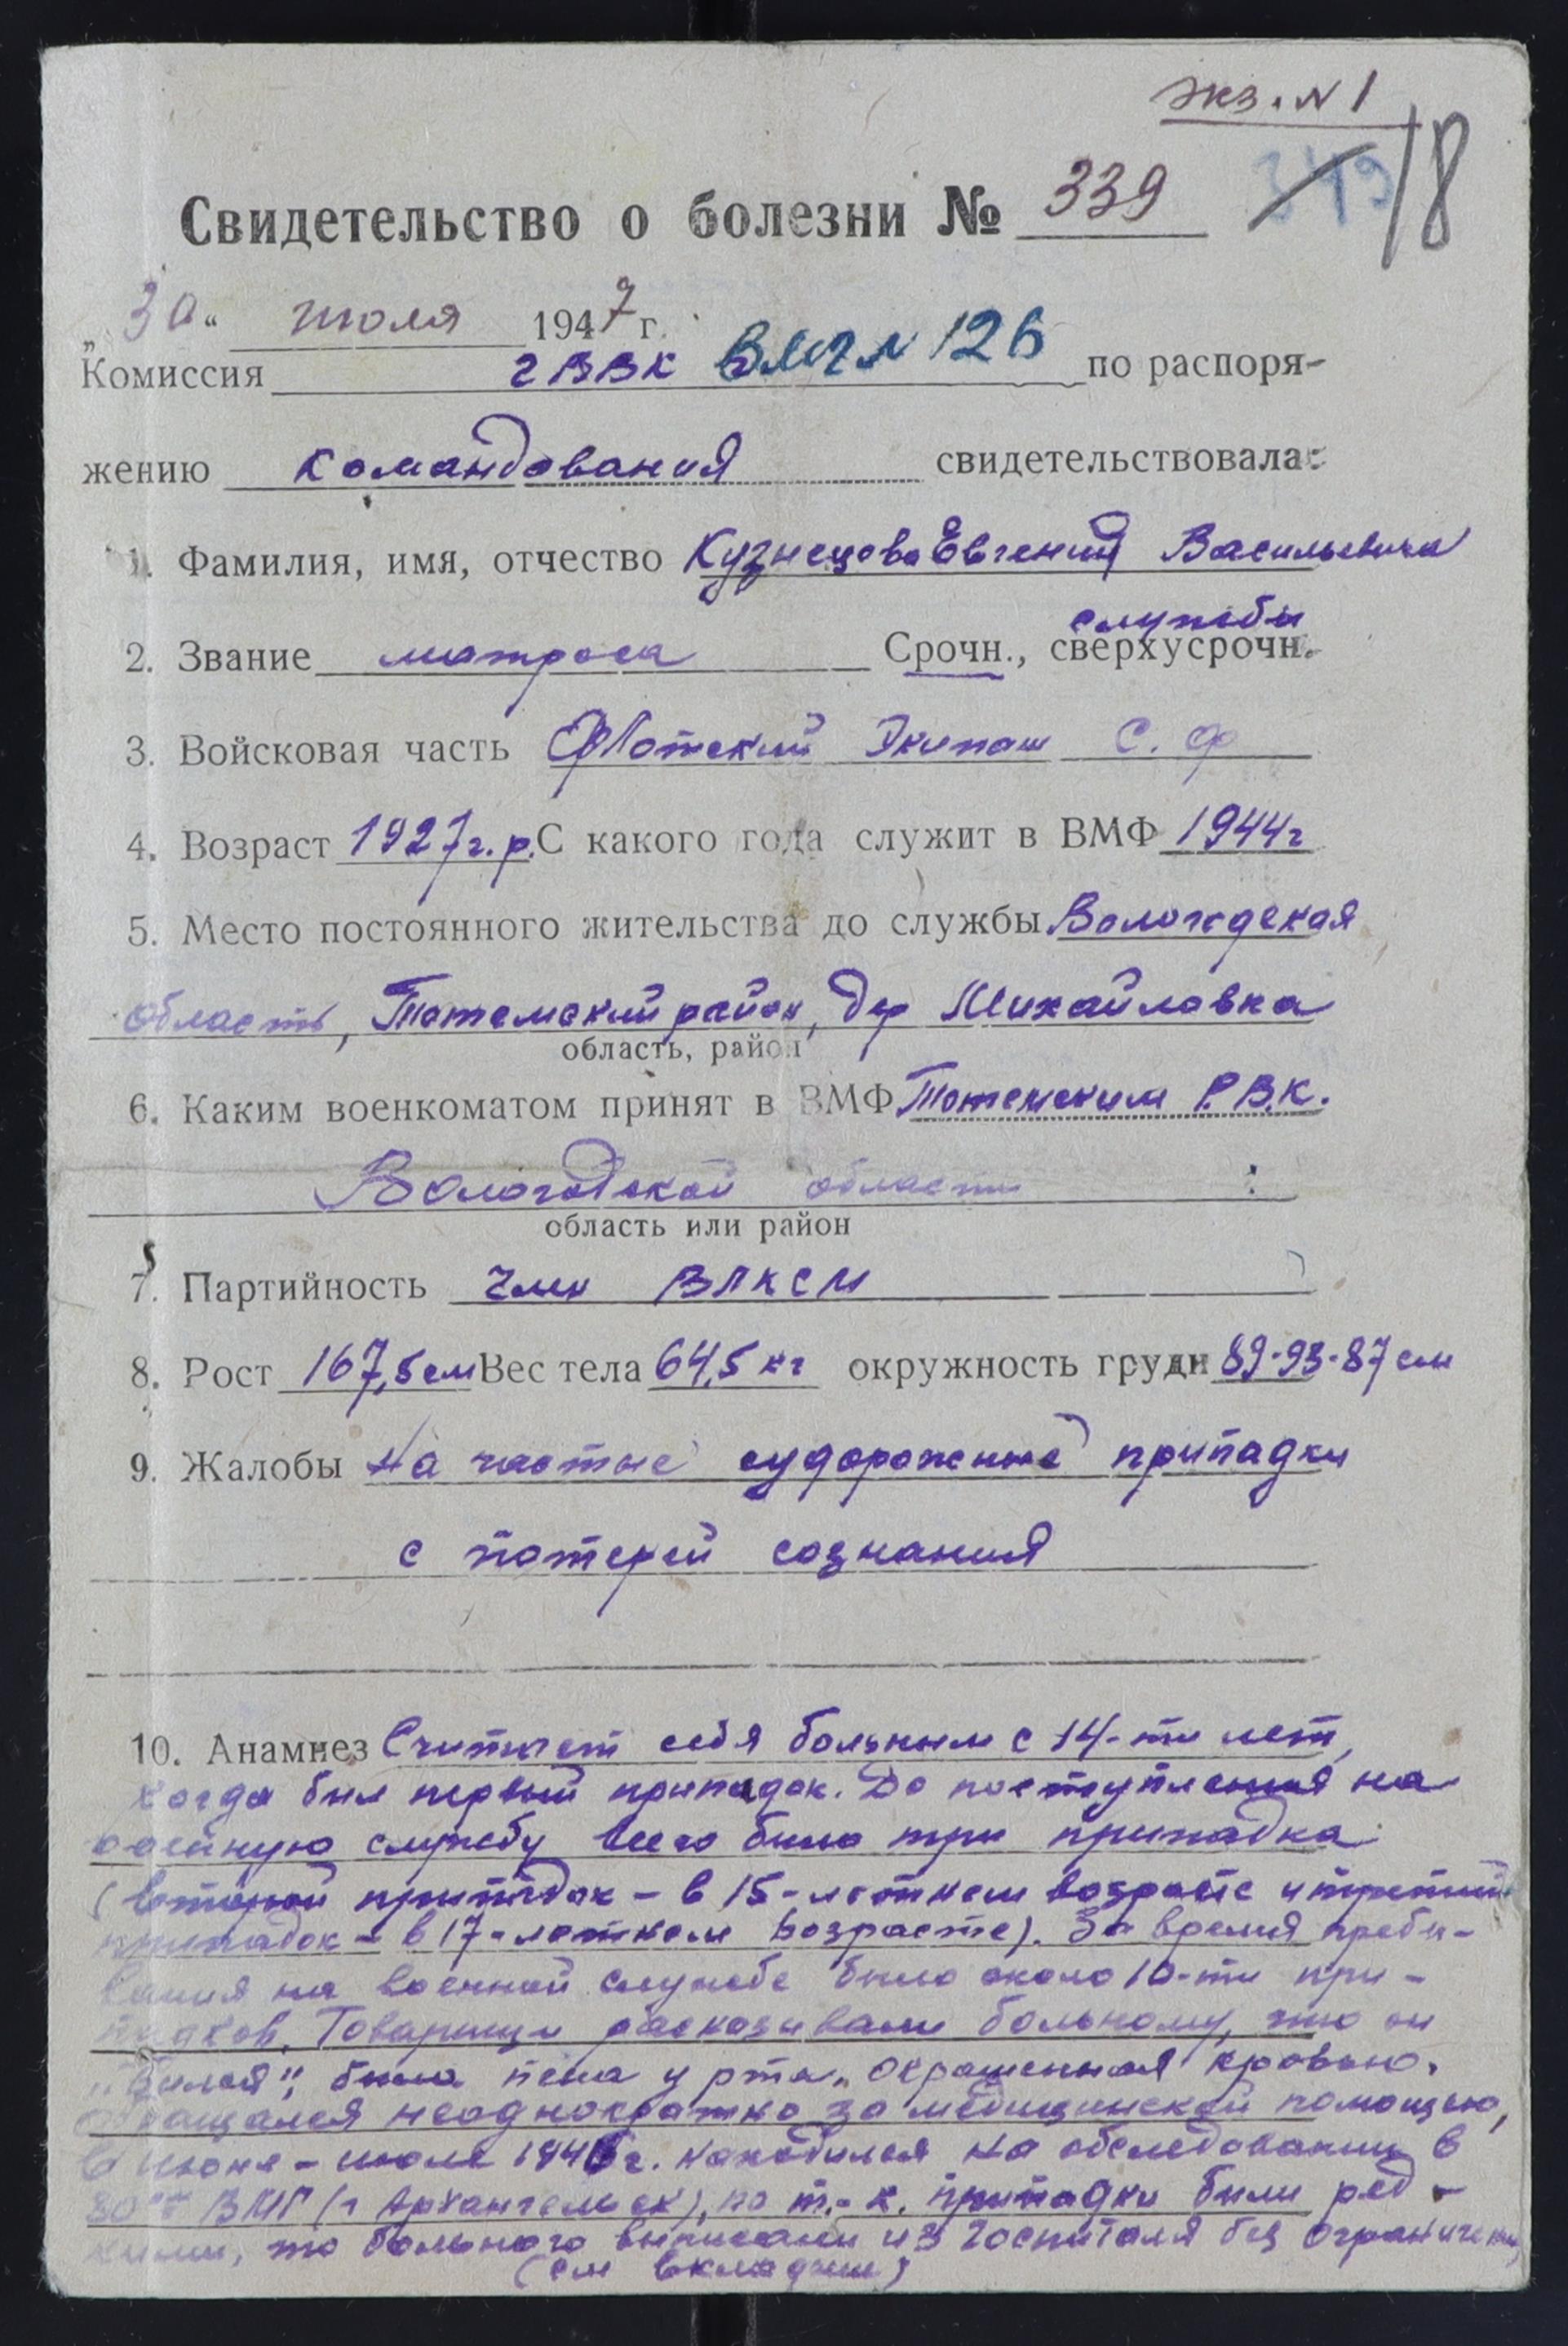 экз. N 1
Свидетельство о болезни № 339
18
„30“ июля 1947 г.
Комиссия гВВК ВМГ N 126 по распоря-
жению командования свидетельствовала:
1. Фамилия, имя, отчество Кузнецова Евгений Васильевича
2. Звание матроса Срочн., сверхусрочн. службы
3. Войсковая часть Флотский Экипаж С. Ф
4. Возраст 1927 г. р. С какого года служит в ВМФ 1944 г
5. Место постоянного жительства до службы Вологодская
область, Тотемский район, дер Михайловка
область, район
6. Каким военкоматом принят в ВМФ Тотемским Р.В.К.
Вологодской области
область или район
7. Партийность член ВЛКСМ
8. Рост 167,5 см Вес тела 64,5 кг окружность груди 89-93-87 см
9. Жалобы на частые судорожные припадки
с потерей сознания
10. Анамнез Считает себя больным с 14-ти лет,
когда был первый припадок. До поступления на
военную службу всего было три припадка
(второй припадок - в 15-летнем возрасте и третий
припадок - в 17-летнем возрасте). За время пребы-
вания на военной службе было около 10-ти при-
падков. Товарищи расказывали больному, что он
„бился", была пена у рта, окрашенная кровью.
обращался неоднократно за медицинской помощью,
в июне - июле 1946 г. находился на обследовании в
ВМГ (г Архангельск), но т.-к. припадки были ред-
кими, то больного выписали из госпиталя без ограничения
(см вкладыш)